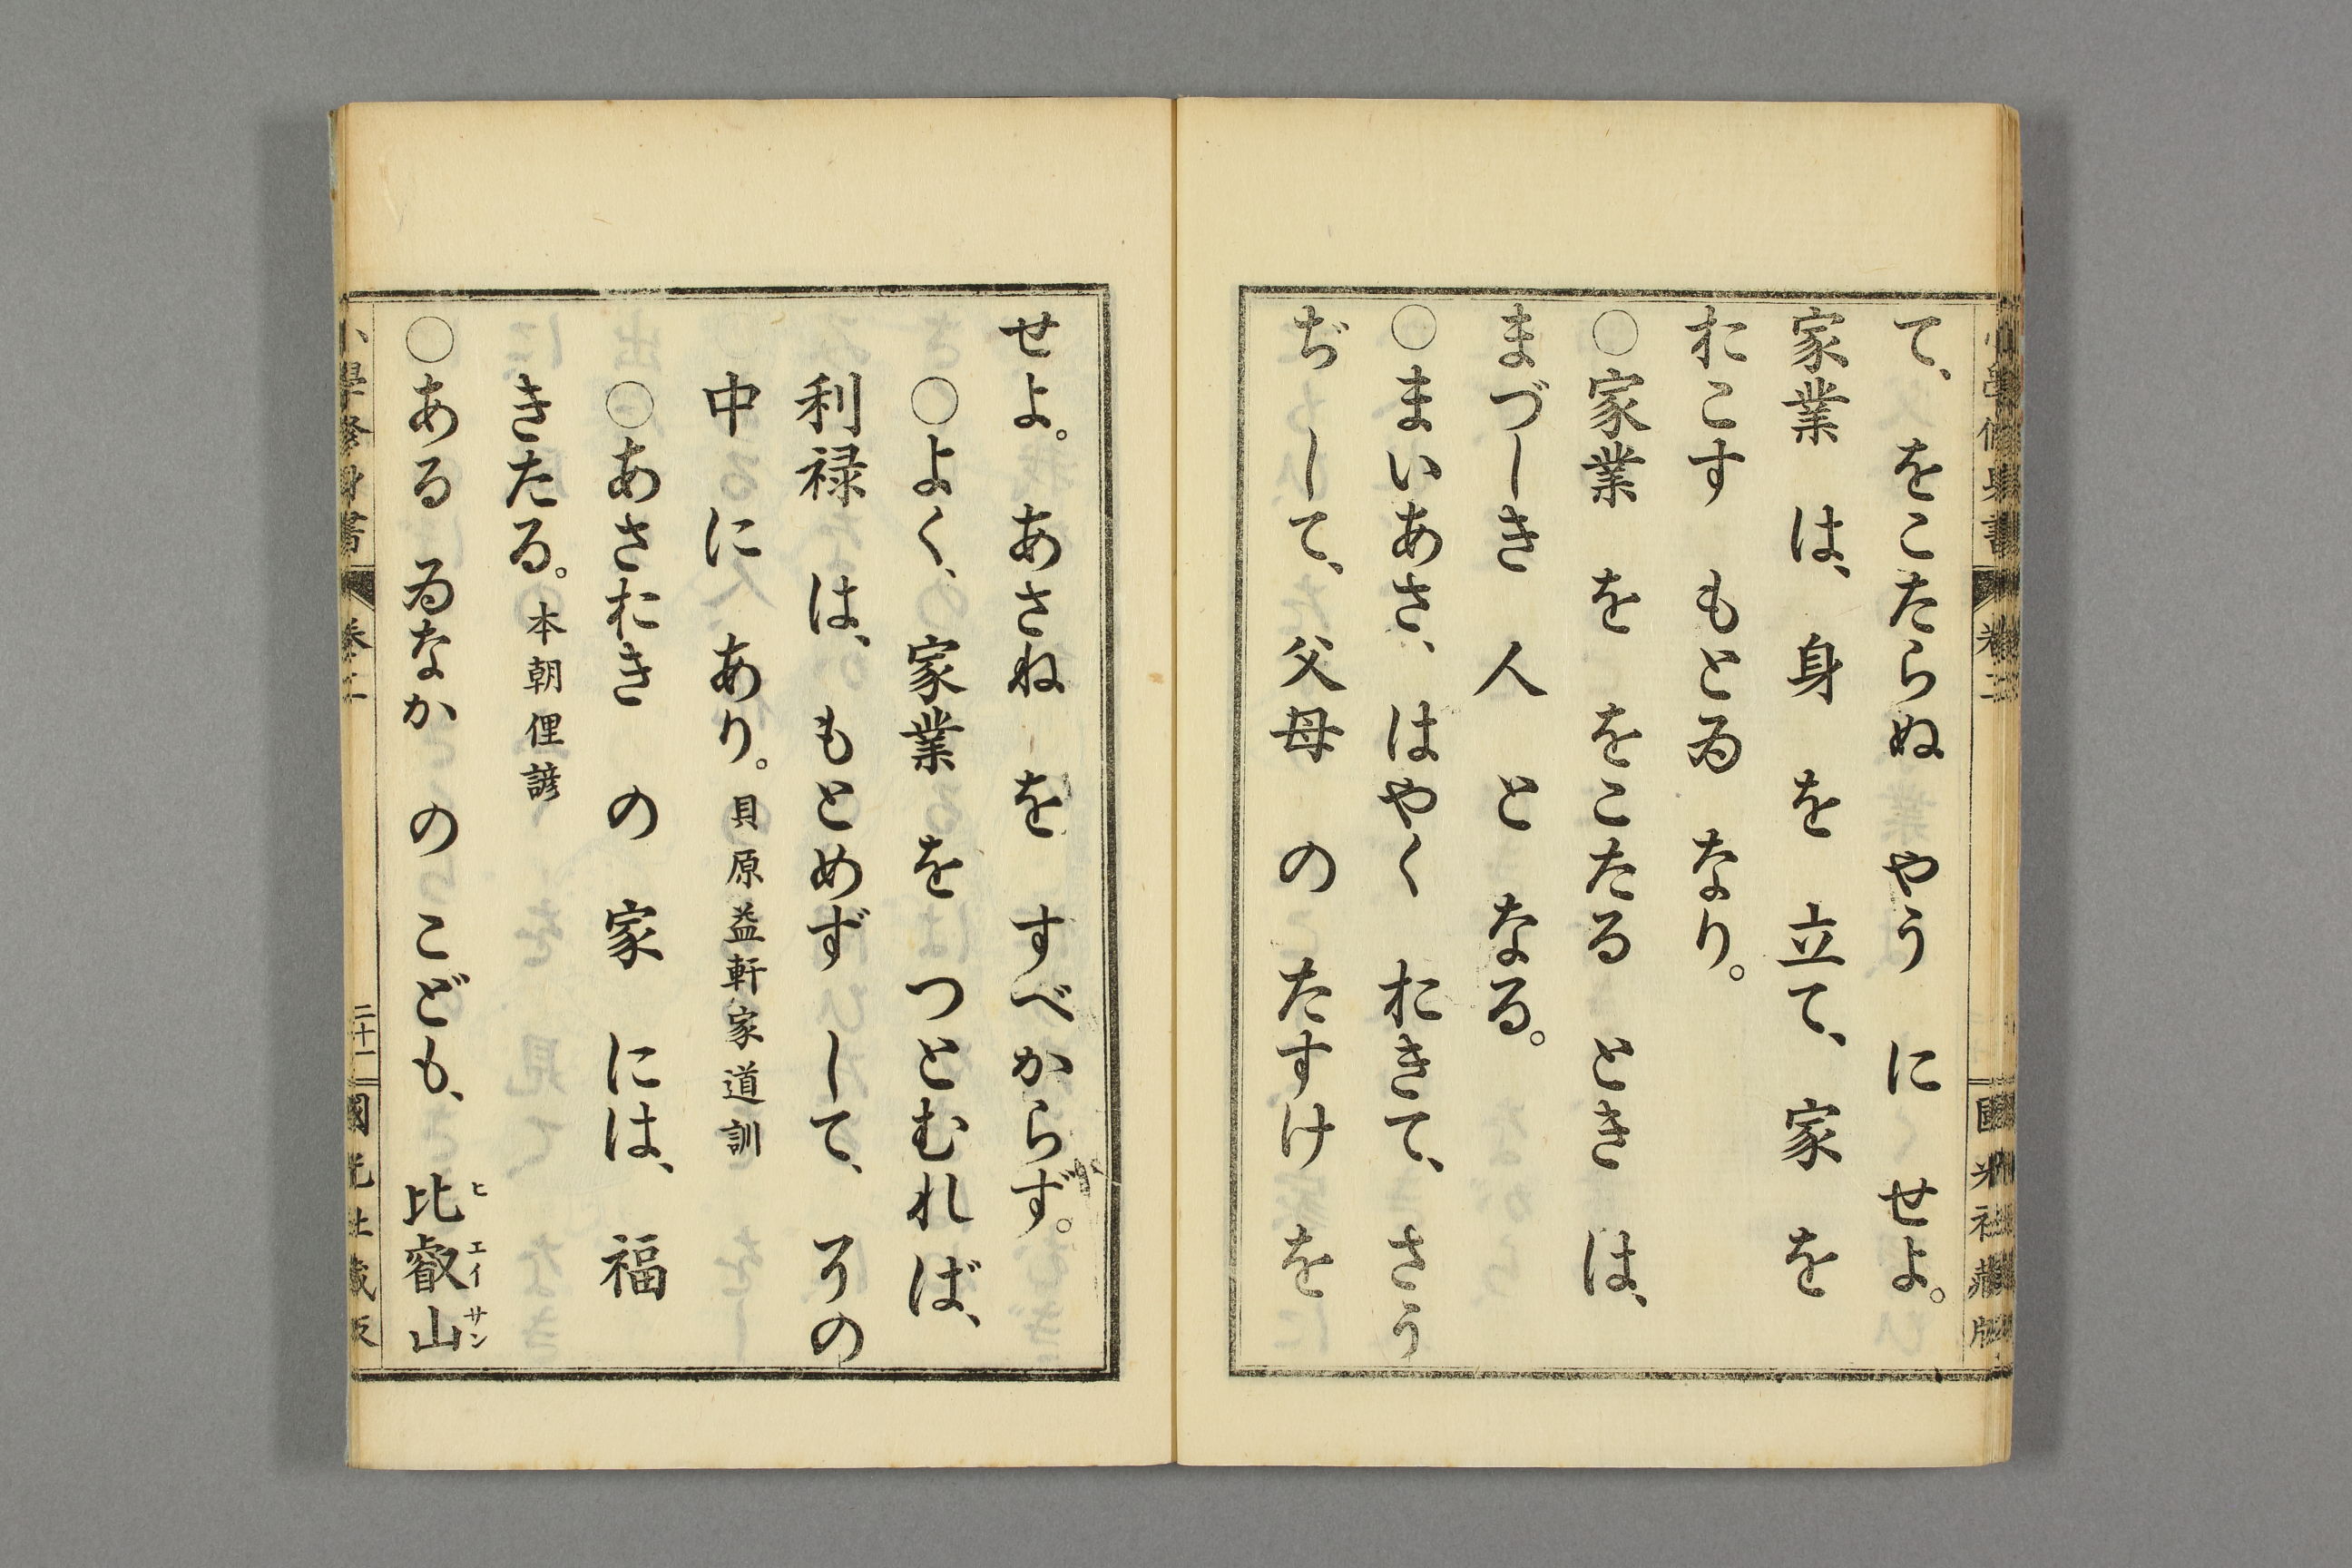 て、をこたらぬ やう に せよ。
家業 は、身 を 立て、家 を
おこす もとゐ なり。
○家業 を をこたる とき は、
まづしき 人 と なる。
○まいあさ、はやく おきて、さう
ぢ して、父母 の たすけ を
せよ。あさね を すべからず。
○よく、家業 を つとむれば、
利禄 は、もとめず して、その
中に あり。貝原益軒家道訓
○あさおき の 家 には、福
きたる。本朝俚諺
○ある ゐなか の こども、比叡山
ヒエイサン
小學修身書 卷二 二十一 國光社藏版